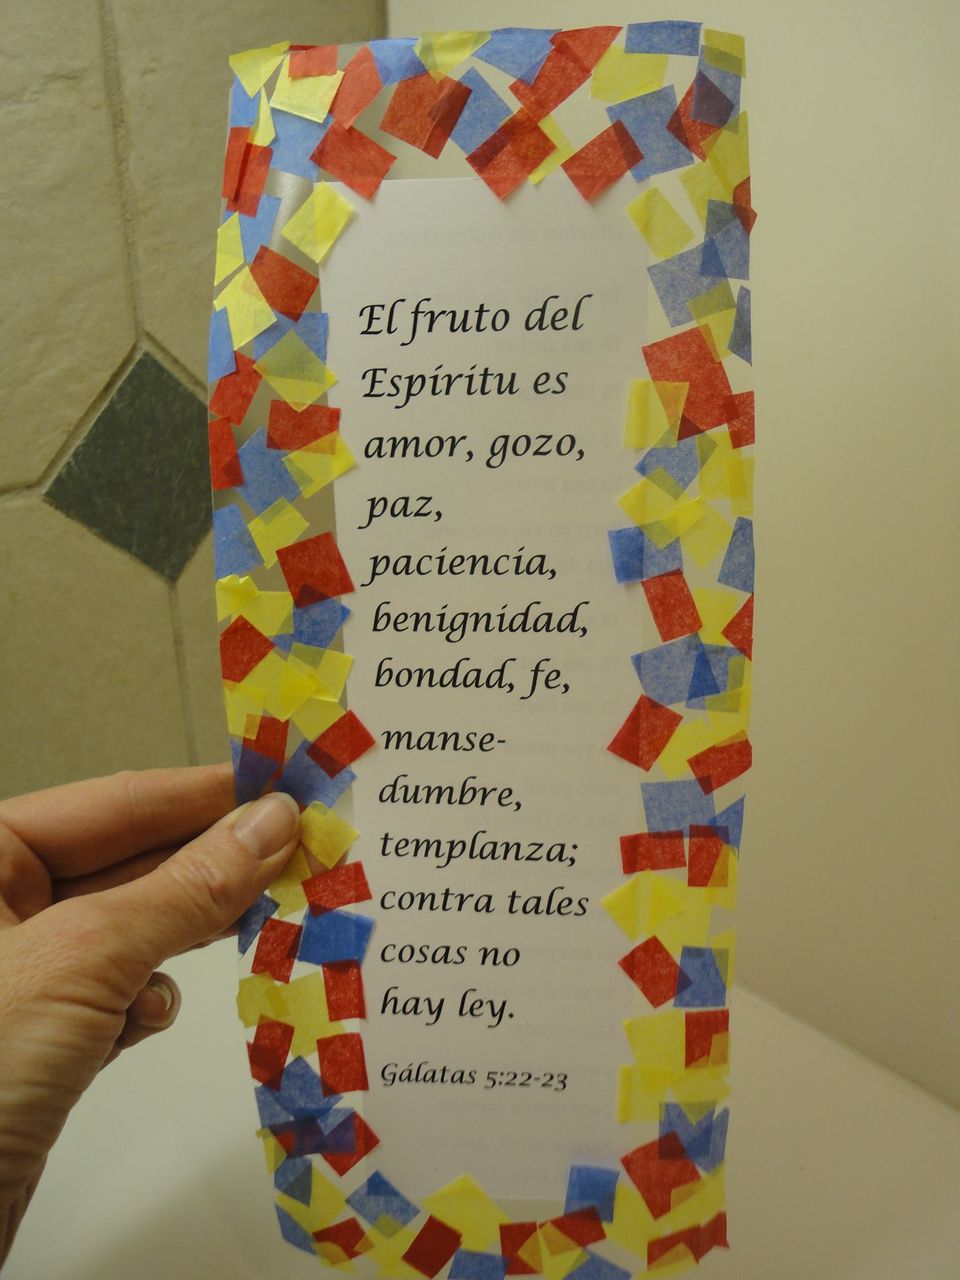 El fruto del
Espíritu es
amor, gozo,
paz,
paciencia,
benignidad,
bondad, fe,
manse-
dumbre,
templanza;
contra tales
cosas no
hay ley.
Gálatas 5:22-23